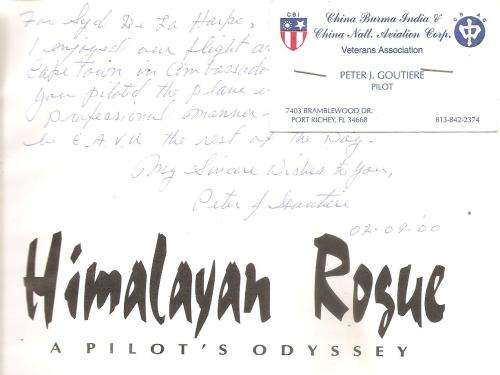 For Syd De La Harpe,
enjoyed our flight a
Cape Town in Combassado
you piloted the plane
professional manner
the rest of the Way.
My Sincere Wishes to You,
Peter J Goutiere
02-09-00
CBI
China Burma India &
China Natl. Aviation Corp.
Veterans Association
PETER J. GOUTIERE
PILOT
7403 BRAMBLEWOOD DR.
PORT RICHEY, FL 34668
813-842-2374
Himalayan Rogue
A PILOT'S ODYSSEY